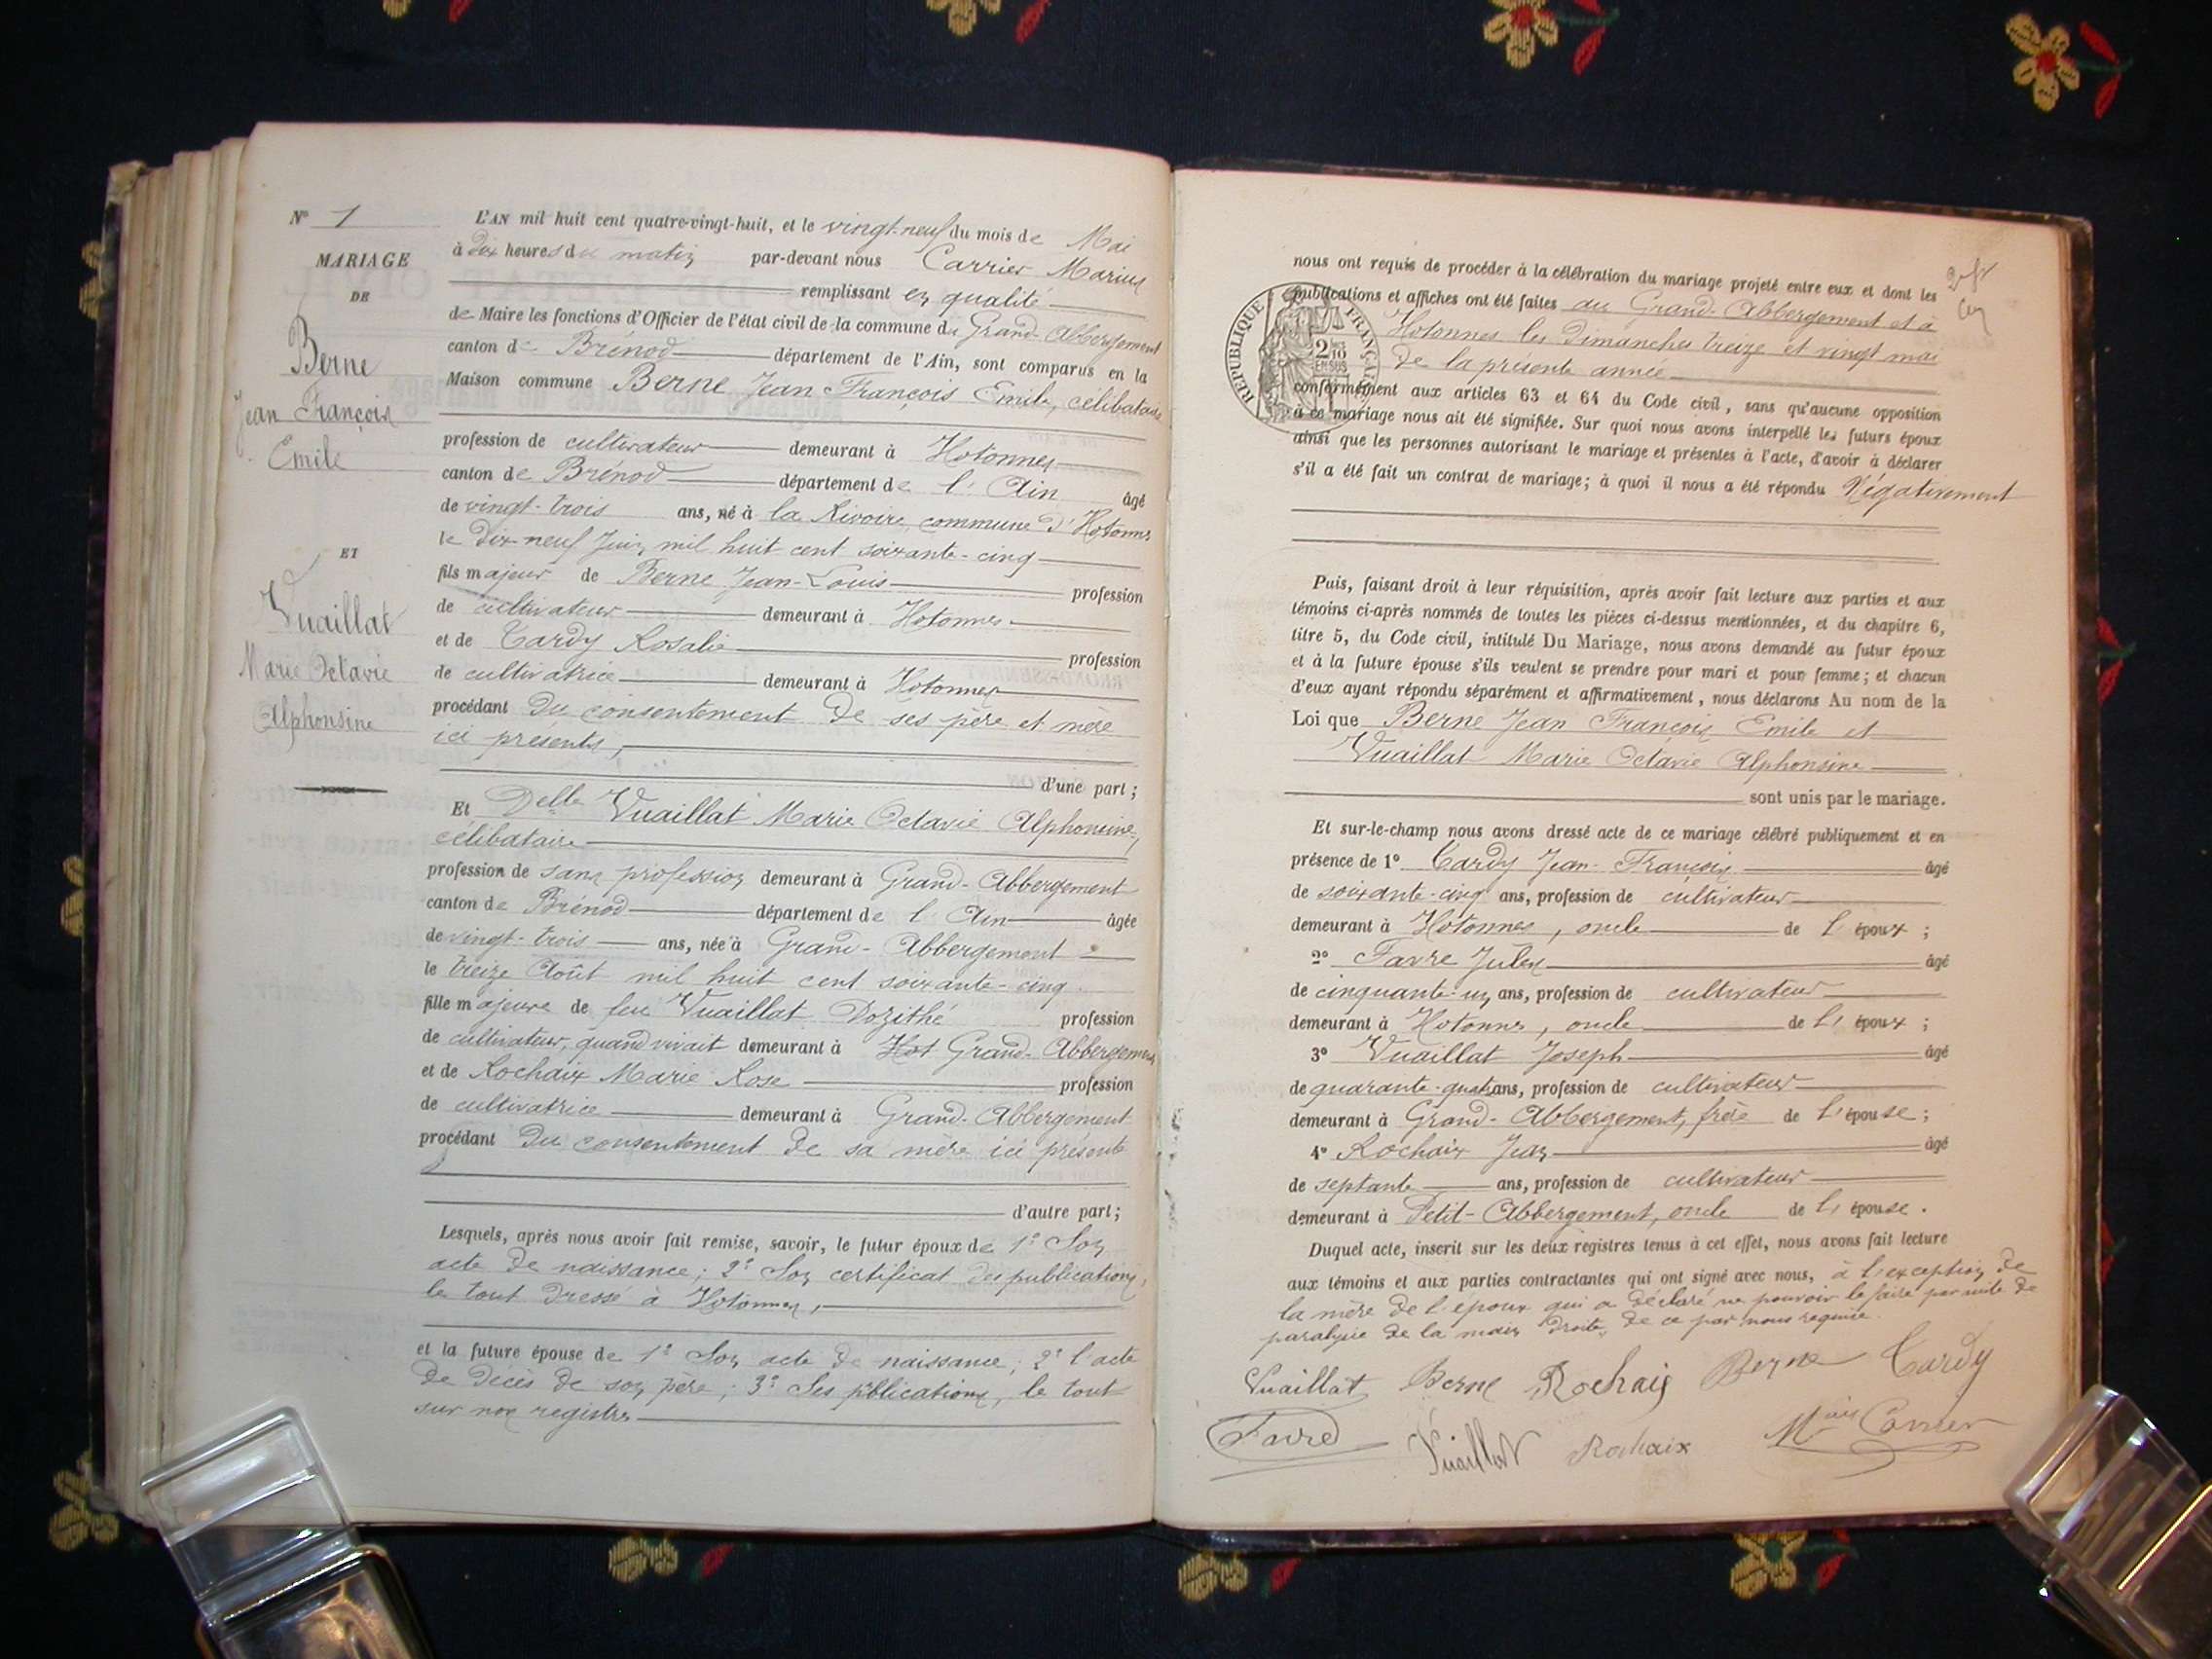 N° 1
MARIAGE
DE
Berne
Jean François
Emile
ET
Vuaillat
Marie Octavie
Alphonsine
L'AN mil huit cent quatre-vingt-huit, et le vingt-neuf du mois de Mai
à dix heures du matin par-devant nous Carrier Marius
remplissant en qualité
de Maire les fonctions d'Officier de l'état civil de la commune du Grand-Abbergement
canton de Brénod département de l'Ain, sont comparus en la
Maison commune Berne Jean François Emile, célibataire
profession de cultivateur demeurant à Hotonnes
canton de Brénod département de l'Ain âgé
de vingt-trois ans, né à la Rivoire, commune d'Hotonnes
le dix-neuf Juin mil huit cent soixante-cinq
fils majeur de Berne Jean-Louis profession
de cultivateur demeurant à Hotonnes
et de Tardy Rosalie profession
de cultivatrice demeurant à Hotonnes
procédant du consentement de ses père et mère
ici presents,
d'une part ;
Et Delle Vuaillat Marie Octavie Alphonsine,
célibataire
profession de sans profession demeurant à Grand-Abbergement
canton de Brénod département de l'Ain âgée
de vingt-trois ans, née à Grand-Abbergement
le treize Août mil huit cent soixante-cinq.
fille majeure de feu Vuaillat Dozithé profession
de cultivateur, quand vivait demeurant à Hot Grand-Abbergement
et de Rochaix Marie Rose profession
de cultivatrice demeurant à Grand-Abbergement
procédant du consentement de sa mère ici présente
d'autre part ;
Lesquels, après nous avoir fait remise, savoir, le futur époux de 1° Son
acte de naissance ; 2° Son certificat des publications,
le tout dressé à Hotonnes,
et la future épouse de 1° Son acte de naissance ; 2° l'acte
de décès de son père ; 3° Ses publications, le tout
sur nos registres
nous ont requis de procéder à la célébration du mariage projeté entre eux et dont les
publications et affiches ont été faites au Grand-Abbergement et à
Hotonnes les Dimanches treize et vingt mai
de la présente année
REPUBLIQUE FRANÇAISE
2/10
EN SUS
conformément aux articles 63 et 64 du Code civil, sans qu'aucune opposition
à ce mariage nous ait été signifiée. Sur quoi nous avons interpellé les futurs époux
ainsi que les personnes autorisant le mariage et présentes à l'acte, d'avoir à déclarer
s'il a été fait un contrat de mariage ; à quoi il nous a été répondu Négativement
Puis, faisant droit à leur réquisition, après avoir fait lecture aux parties et aux
témoins ci-après nommés de toutes les pièces ci-dessus mentionnées, et du chapitre 6,
titre 5, du Code civil, intitulé Du Mariage, nous avons demandé au futur époux
et à la future épouse s'ils veulent se prendre pour mari et pour femme ; et chacun
d'eux ayant répondu séparément et affirmativement, nous déclarons Au nom de la
Loi que Berne Jean François Emile et
Vuaillat Marie Octavie Alphonsine
sont unis par le mariage.
Et sur-le-champ nous avons dressé acte de ce mariage célébré publiquement et en
présence de 1° Tardy Jean-François âgé
de soixante-cinq ans, profession de cultivateur
demeurant à Hotonnes, oncle de l'époux ;
2° Favre Jules âgé
de cinquante-un ans, profession de cultivateur
demeurant à Hotonnes, oncle de l'époux ;
3° Vuaillat Joseph âgé
de quarante-quatre ans, profession de cultivateur
demeurant à Grand-Abbergement, frère de l'épouse ;
4° Rochaix Jean âgé
de septante ans, profession de cultivateur
demeurant à Petit-Abbergement, oncle de l'épouse.
Duquel acte, inscrit sur les deux registres tenus à cet effet, nous avons fait lecture
aux témoins et aux parties contractantes qui ont signé avec nous, à l'exception de
la mère de l'époux qui a déclaré ne pouvoir le faire par suite de
paralysie de la main droite, de ce par nous requise.
Vuaillat Berne Rochaix Berne Tardy
Favre Vuaillat Rochaix Mius Carrier